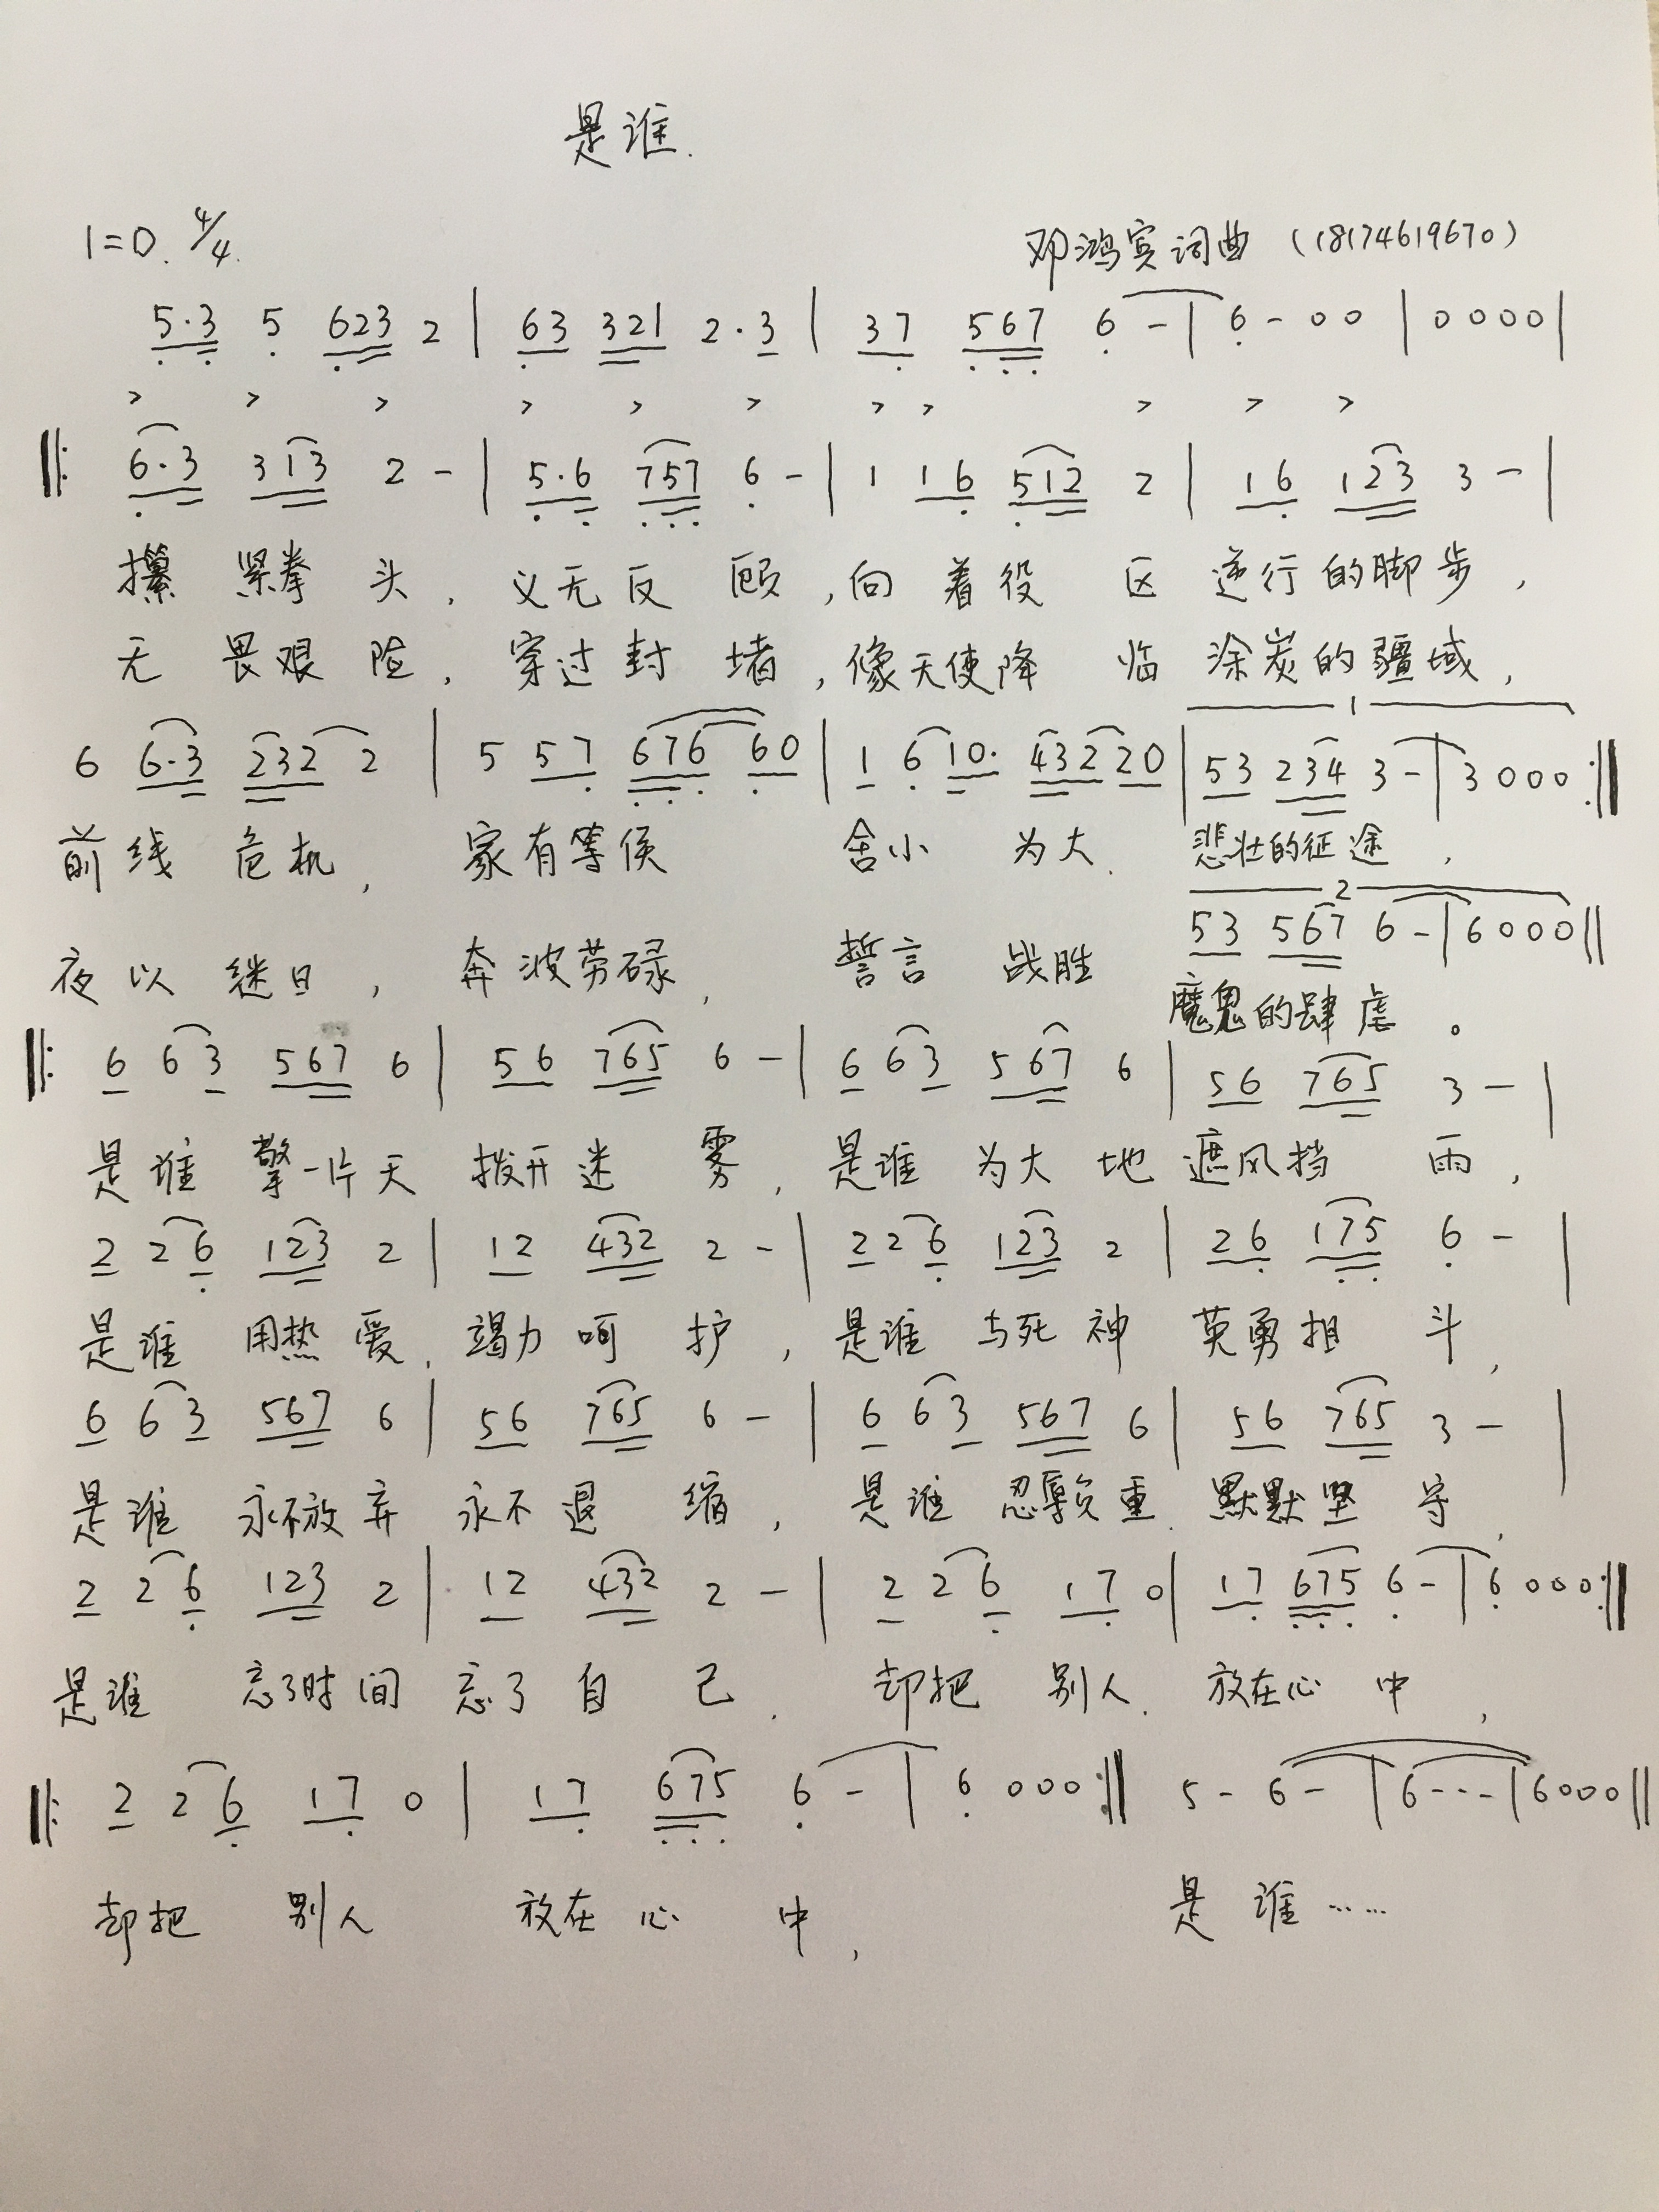 是谁.
1=D. 4/4.
邓鸿宾词曲 (18174619670)
5·3 5 623 2 | 63 321 2·3 | 37 567 6 - | 6 - 0 0 | 0 0 0 0 |
> > > > > > > > > > >
‖: 6·3 313 2 - | 5·6 757 6 - | 1 16 512 2 | 16 123 3 - |
攥 紧拳 头, 义无反 顾,向 着役 区 逆行的脚步,
无 畏艰 险, 穿过封 堵,像天使降 临 涂炭的疆域,
6 6·3 232 2 | 5 57 676 60 | 1 6 10· 432 20 | 1 53 234 3 - | 3 0 0 0 :‖
前线 危机, 家有等候 舍小 为大. 悲壮的征途,
2 53 567 6 - | 6 0 0 0 ‖
夜以 继日, 奔波劳碌, 誓言 战胜 魔鬼的肆虐。
‖: 6 6 3 567 6 | 56 765 6 - | 6 6 3 567 6 | 56 765 3 - |
是谁 擎一片天 拨开迷 雾, 是谁 为大地 遮风挡 雨,
2 2 6 123 2 | 12 432 2 - | 2 2 6 123 2 | 26 175 6 - |
是谁 用热爱, 竭力呵 护, 是谁 与死神 英勇抯 斗,
6 6 3 567 6 | 56 765 6 - | 6 6 3 567 6 | 56 765 3 - |
是谁 永不放弃 永不退 缩, 是谁 忍辱负重. 默默坚 守,
2 2 6 123 2 | 12 432 2 - | 2 2 6 17 0 | 17 675 6 - | 6 0 0 0 :‖
是谁 忘了时间 忘了自 己. 却把 别人. 放在心 中,
‖: 2 2 6 17 0 | 17 675 6 - | 6 0 0 0 :‖ 5 - 6 - | 6 - - - | 6 0 0 0 ‖
却把 别人 放在心 中, 是谁……